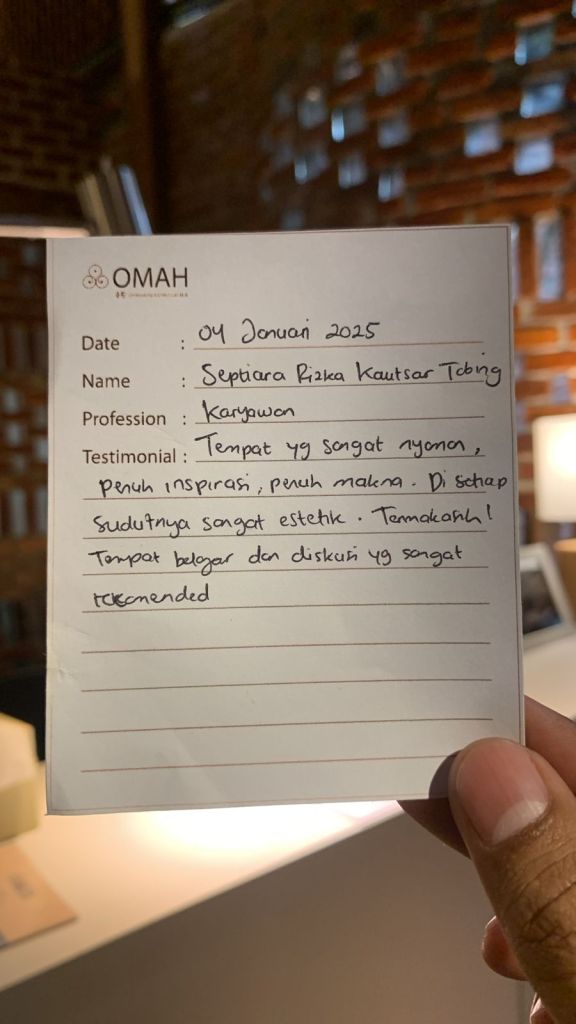 OMAH
Date : 04 Januari 2025
Name : Septiara Rizka Kautsar Tobing
Profession : Karyawan
Testimonial : Tempat yg sangat nyaman,
penuh inspirasi, penuh makna. Di setiap
sudutnya sangat estetik. Terimakasih!
Tempat belajar dan diskusi yg sangat
rekomended